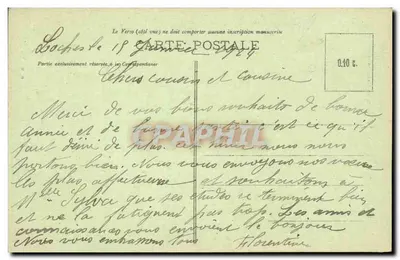 Le Verso (côté vue) ne doit comporter aucune inscription manuscrite
CARTE POSTALE
Loches le 18 Janvier 1924
Partie exclusivement réservée à la Correspondance
0.10 c.
Chers cousin et cousine
Merci de vos bons souhaits de bonne
année et de bonne santé c'est ce qu'il
faut désiré de plus. nous nous
portons bien. Nous vous envoyons nos vœux
les plus affectueux et souhaitons à
Melle Sylva que ses études se terminent bien
et ne la fatiguent pas trop. Les amis et
connaissances vous envoient le bonjour
Nous vous embrassons tous Florentine